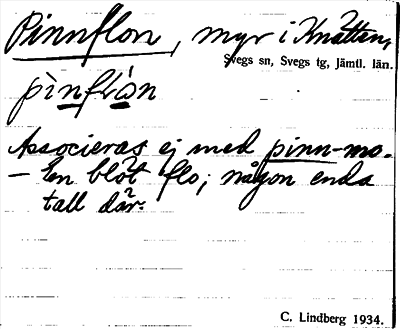 Pinnflon, myr i Knätten,
Svegs sn, Svegs tg, Jämtl. län.
pìnflòn
Associeras ej med pinn-mo.
– En blöt flo; någon enda
tall där.
C. Lindberg 1934.